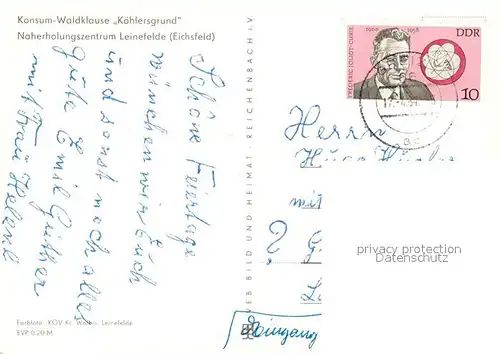 Konsum-Waldklause „Köhlersgrund"
Naherholungszentrum Leinefelde (Eichsfeld)
Schöne Feiertage
wünschen wir Euch
und sonst noch alles
gute Emil Günther
mit Frau Helene
Farbfoto: KOV Kr. Worbis, Leinefelde
EVP 0.20 M
VEB BILD UND HEIMAT REICHENBACH i.V.
FREDERIC JOLIOT-CURIE
1900 1958
DDR
10
Herrn
mit
?
Eingang
privacy protection
Oldthing.de